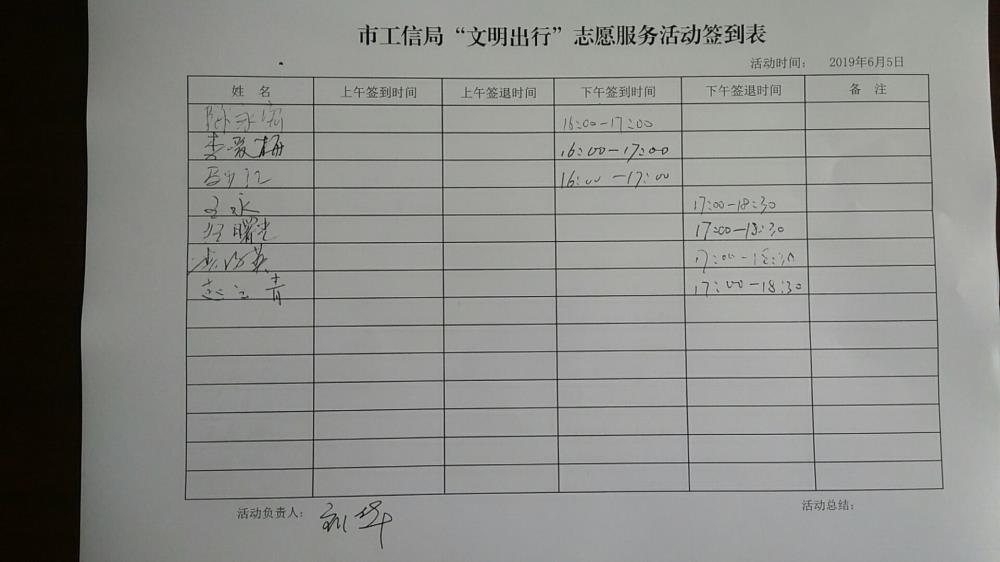 市工信局“文明出行”志愿服务活动签到表
活动时间： 2019年6月5日
姓 名 上午签到时间 上午签退时间 下午签到时间 下午签退时间 备 注
16:00-17:00
李爱梅 16:00-17:00
16:00-17:00
王永 17:00-18:30
曙光 17:00-18:30
17:00-18:30
青 17:00-18:30
活动负责人： 刘华 活动总结：